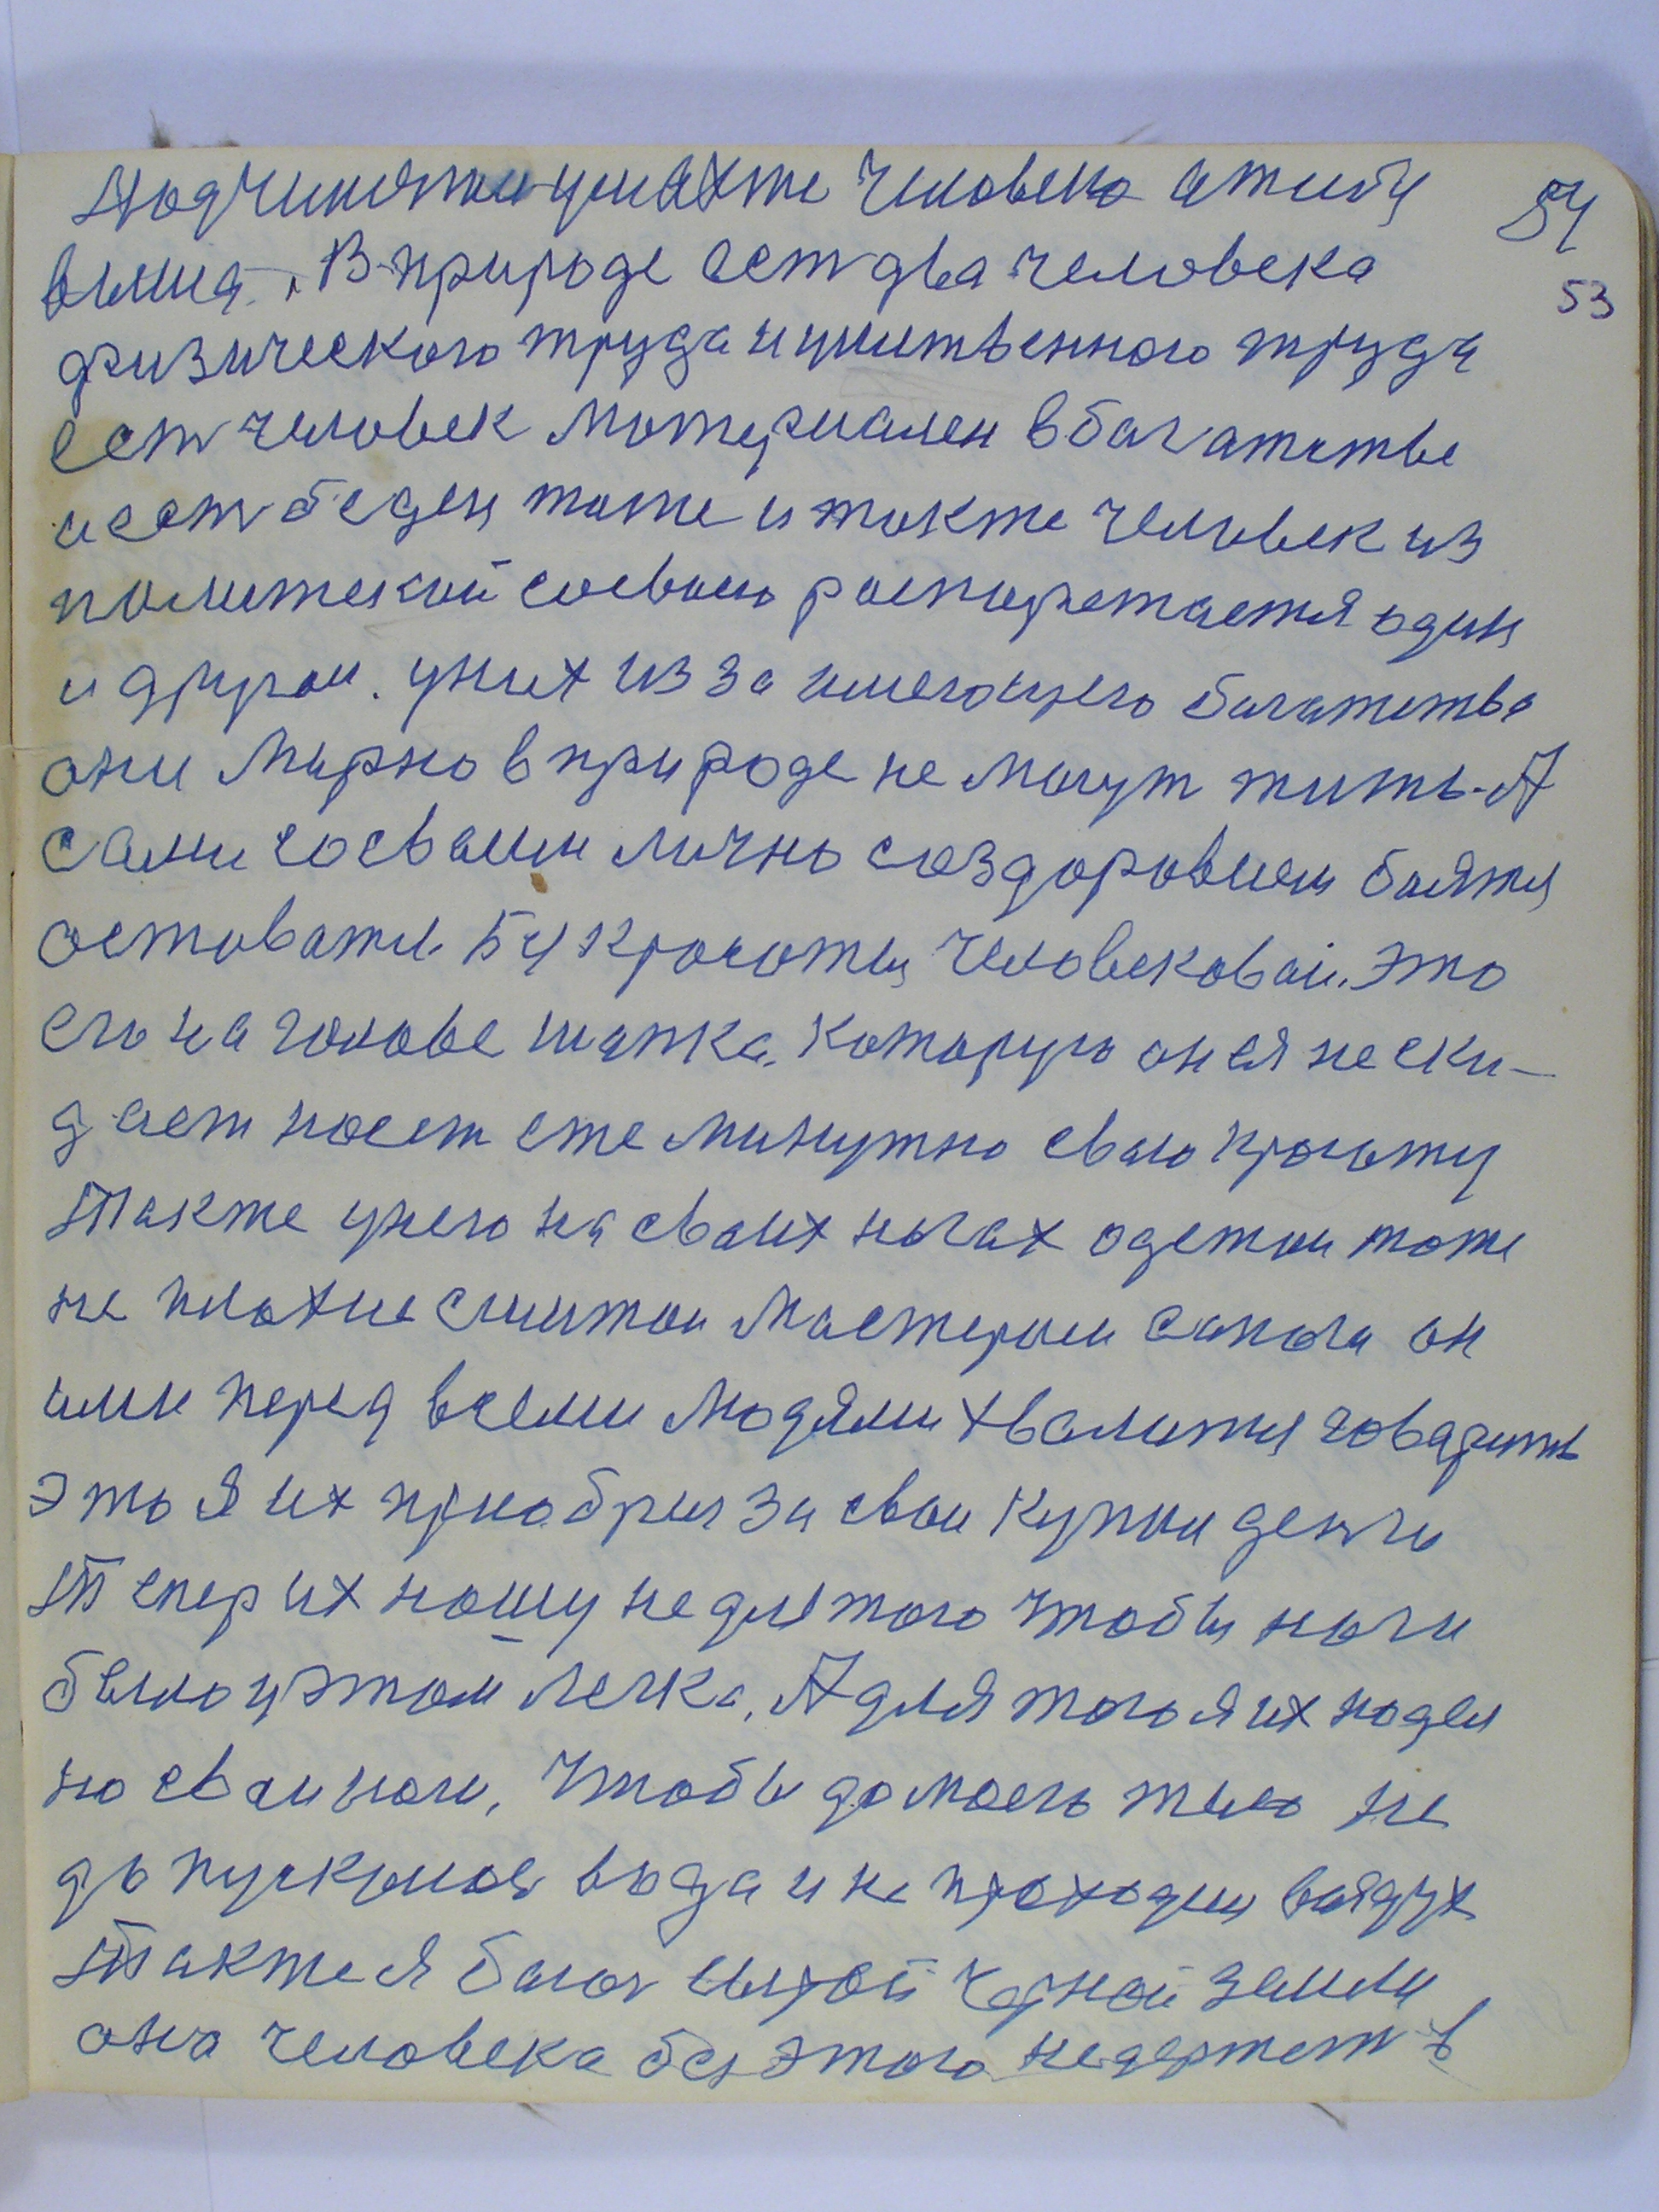 54
53
человека
выша. В природе ест два человека
физического труда и умственного труда
ест человек материален в багатстве
и ест беден тоже и также человек из
политекой своею распоряжается один
и другои. у них из за имеющего багатства
они мирно в природе не могут жить. А
сами со своим лично со здоровием боятся
Человековай. Это
его на голове шапка. Которую он ея не ски-
дает носет еже минутно сваю красоту
Также у него на сваих ногах одетои тоже
не плохие сшитои мастером сапоги он
ими перед всеми людями хвалится говарить
это я их приобрил за свои купои денги
Тепер их ношу не для того чтобы ноги
было у этом легка, А для того я их надел
на сваи ноги, Чтобы до моего тело не
допускалось вода и не проходил
Также я багат сырой Чорной земли
она человека без этого не держеть